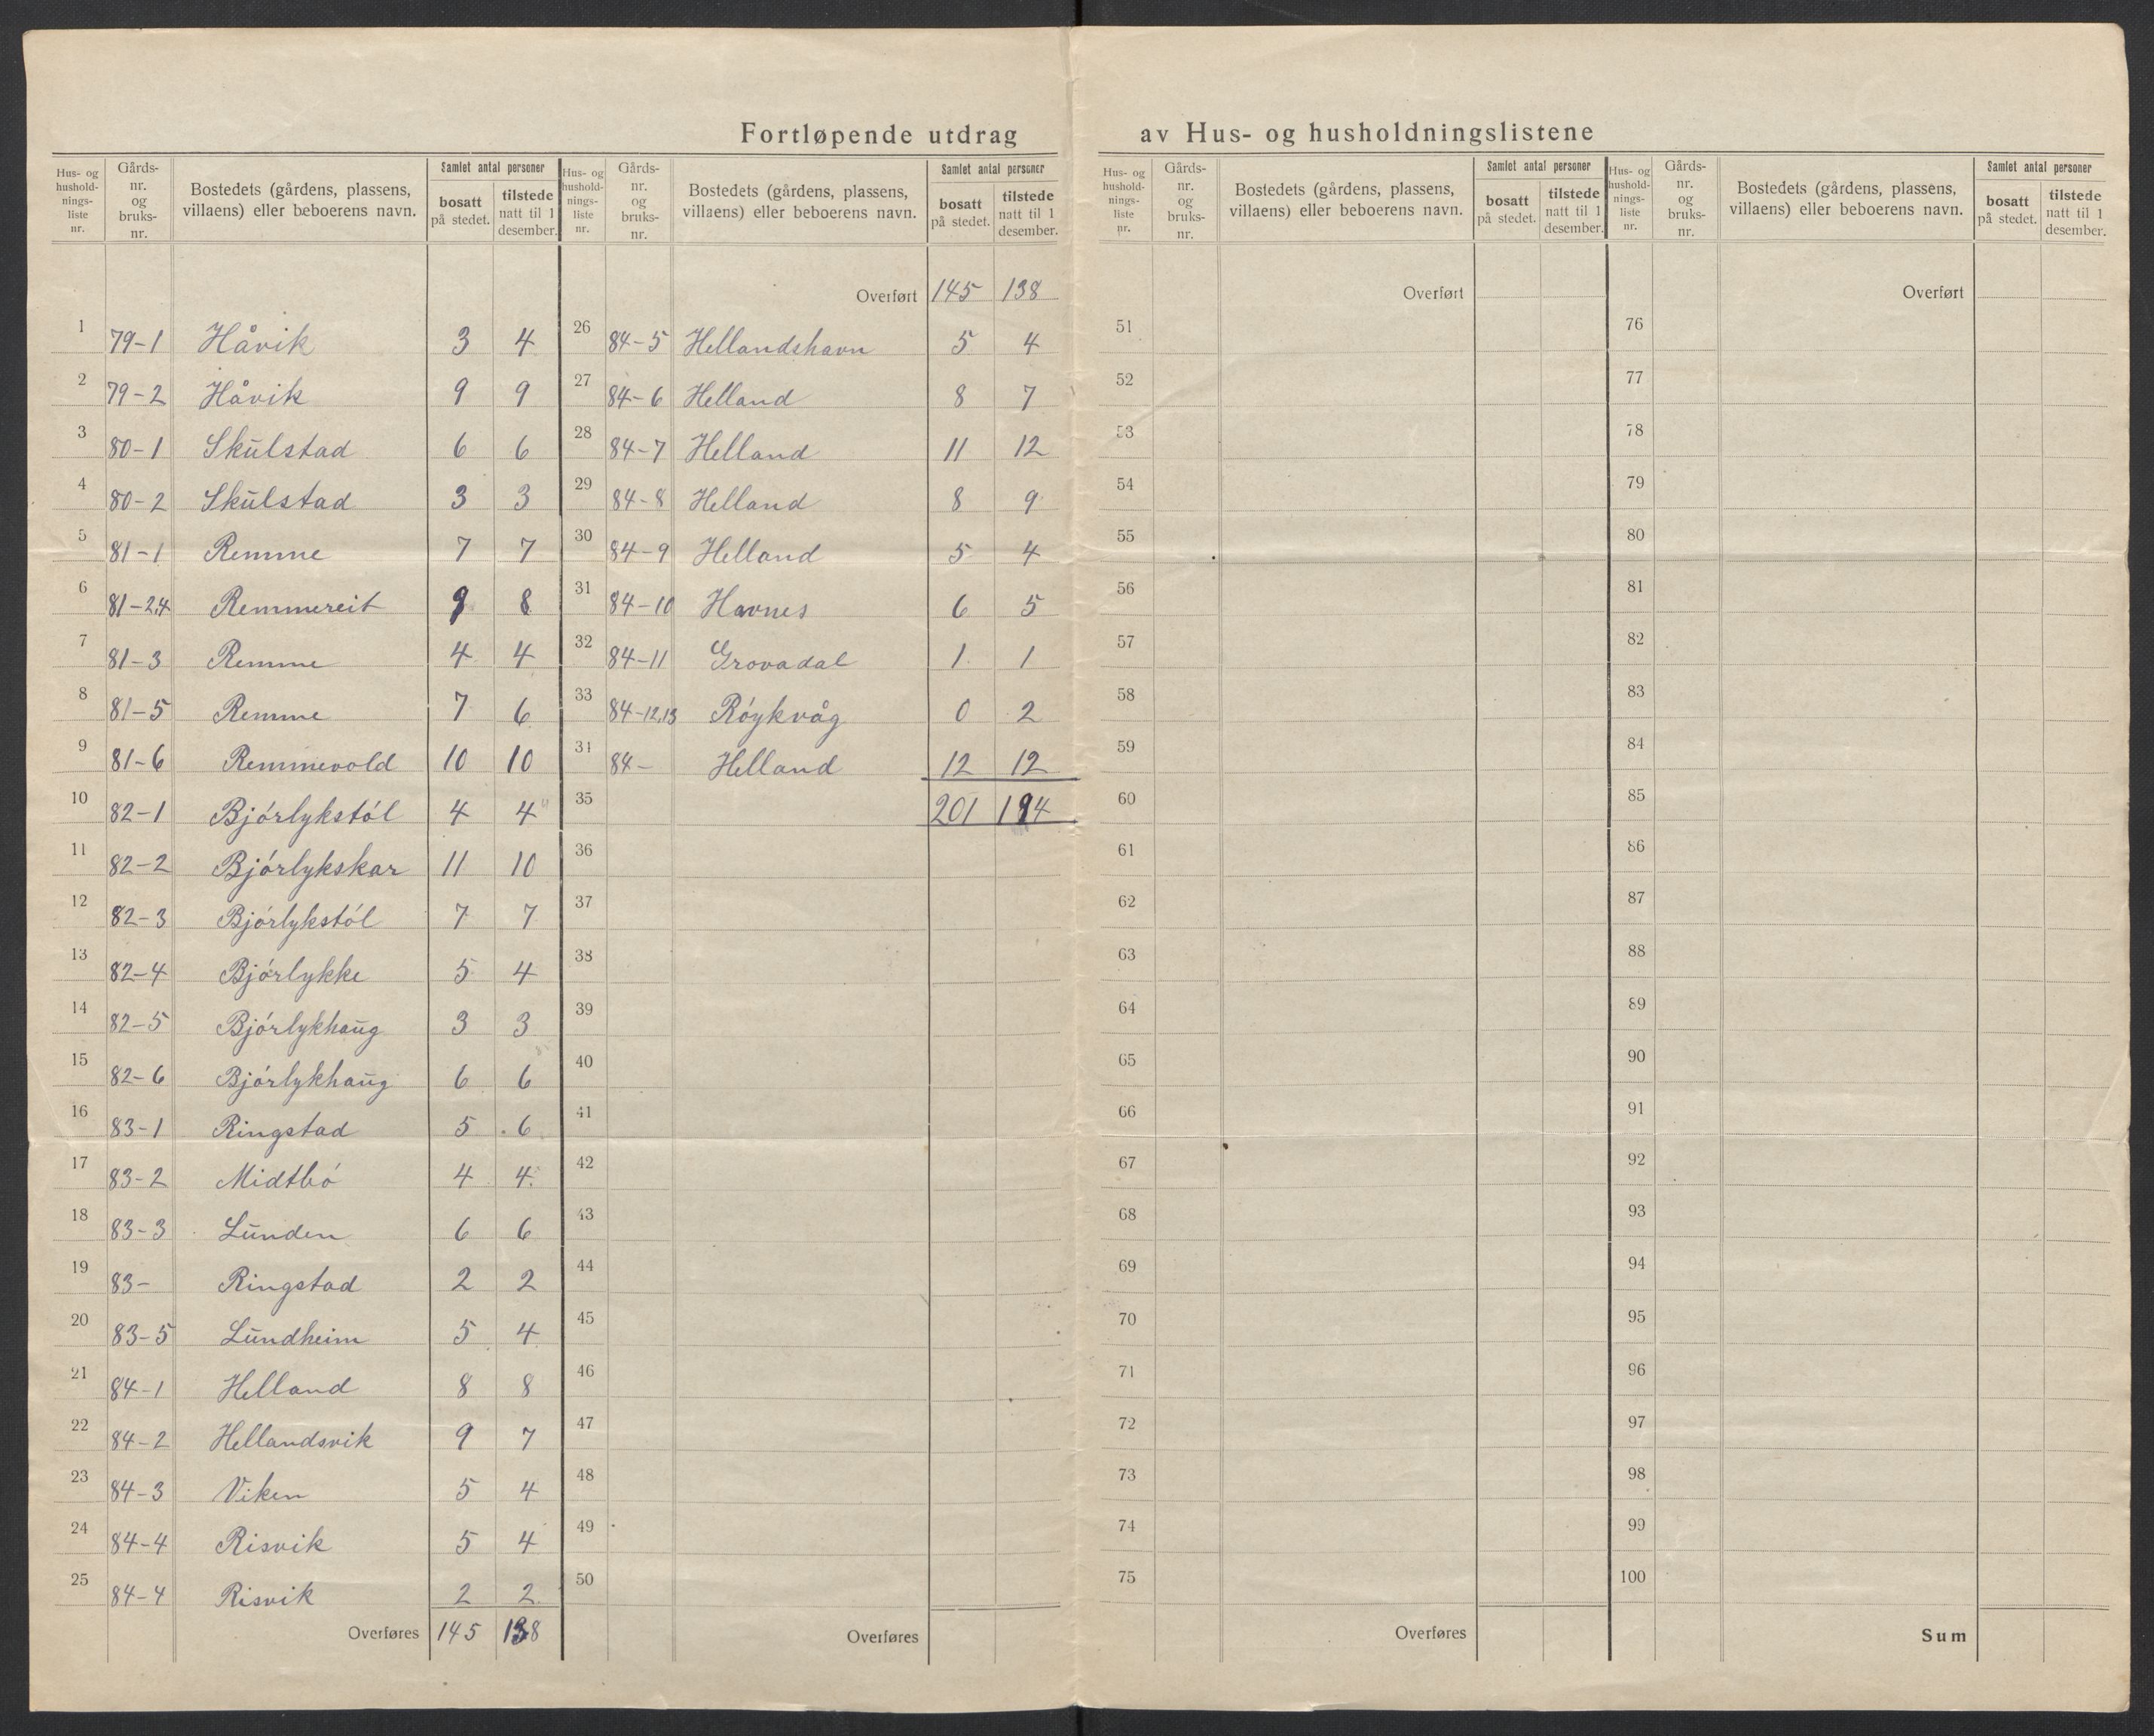 Fortløpende utdrag av Hus- og husholdningslistene
Hus- og hushold- nings- liste nr. | Gårds- nr. og bruks- nr. | Bostedets (gårdens, plassens, villaens) eller beboerens navn. | Samlet antal personer bosatt på stedet. | tilstede natt til 1 desember.
Hus- og hushold- nings- liste nr. | Gårds- nr. og bruks- nr. | Bostedets (gårdens, plassens, villaens) eller beboerens navn. | Samlet antal personer bosatt på stedet. | tilstede natt til 1 desember.
1 79-1 Håvik 3 4
2 79-2 Håvik 9 9
3 80-1 Skŭlstad 6 6
4 80-2 Skŭlstad 3 3
5 81-1 Remme 7 7
6 81-2,4 Remmereit 9 8
7 81-3 Remme 4 4
8 81-5 Remme 7 6
9 81-6 Remmevold 10 10
10 82-1 Bjórlykstól 4 4
11 82-2 Bjórlykskar 11 10
12 82-3 Bjórlykstól 7 7
13 82-4 Bjórlykke 5 4
14 82-5 Bjórlykhaŭg 3 3
15 82-6 Bjórlykhaŭg 6 6
16 83-1 Ringstad 5 6
17 83-2 Midtbó 4 4
18 83-3 Lŭnden 6 6
19 83- Ringstad 2 2
20 83-5 Lŭndheim 5 4
21 84-1 Helland 8 8
22 84-2 Hellandsvik 9 7
23 84-3 Viken 5 4
24 84-4 Risvik 5 4
25 84-4 Risvik 2 2
Overføres 145 138
Overført 145 138
26 84-5 Hellandshavn 5 4
27 84-6 Helland 8 7
28 84-7 Helland 11 12
29 84-8 Helland 8 9
30 84-9 Helland 5 4
31 84-10 Havnes 6 5
32 84-11 Grovadal 1 1
33 84-12,13 Róykvåg 0 2
34 84- Helland 12 12
35 201 194
36
37
38
39
40
41
42
43
44
45
46
47
48
49
50
Overføres
Hus- og hushold- nings- liste nr. | Gårds- nr. og bruks- nr. | Bostedets (gårdens, plassens, villaens) eller beboerens navn. | Samlet antal personer bosatt på stedet. | tilstede natt til 1 desember.
Overført
51
52
53
54
55
56
57
58
59
60
61
62
63
64
65
66
67
68
69
70
71
72
73
74
75
Overføres
Hus- og hushold- nings- liste nr. | Gårds- nr. og bruks- nr. | Bostedets (gårdens, plassens, villaens) eller beboerens navn. | Samlet antal personer bosatt på stedet. | tilstede natt til 1 desember.
Overført
76
77
78
79
80
81
82
83
84
85
86
87
88
89
90
91
92
93
94
95
96
97
98
99
100
Sum